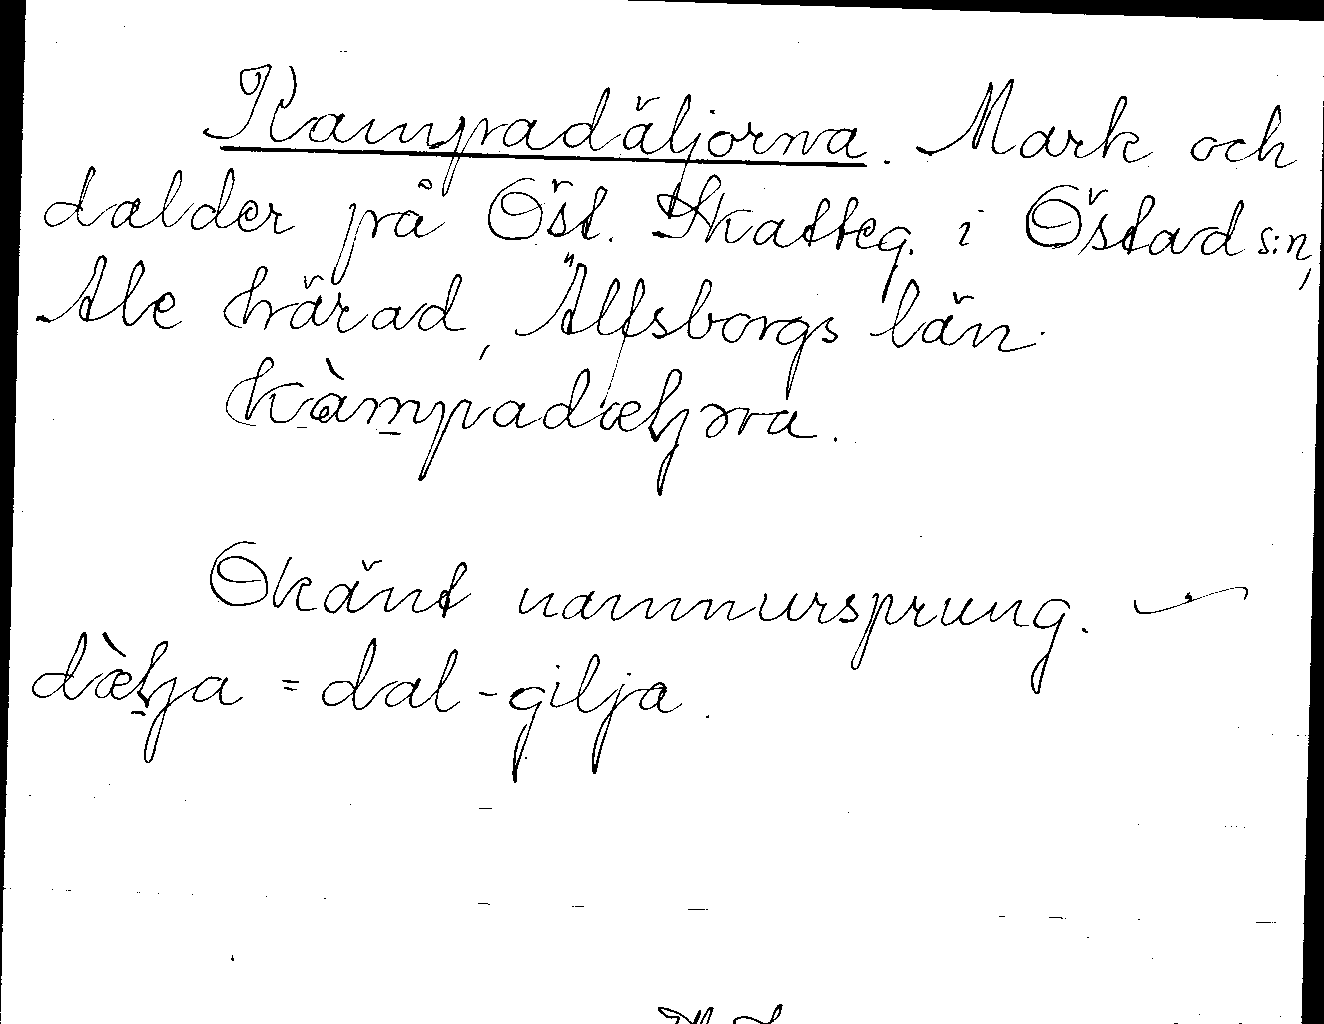 Kampadäljorna. Mark och
dalder på Öst. Skatteg. i Östad s:n,
Ale härad, Älfsborgs län.
kàmpadæljɔra.
Okänt namnursprung. –
dæ̀lja = dal-gilja.